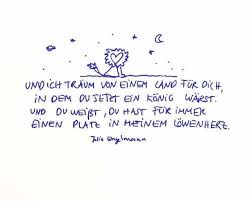 UND ICH TRÄUM VON EINEM LAND FÜR DICH,
IN DEM DU JETZT EIN KÖNIG WÄRST.
UND DU WEIßT, DU HAST FÜR IMMER
EINEN PLATZ IN MEINEM LÖWENHERZ.
Julia Engelmann